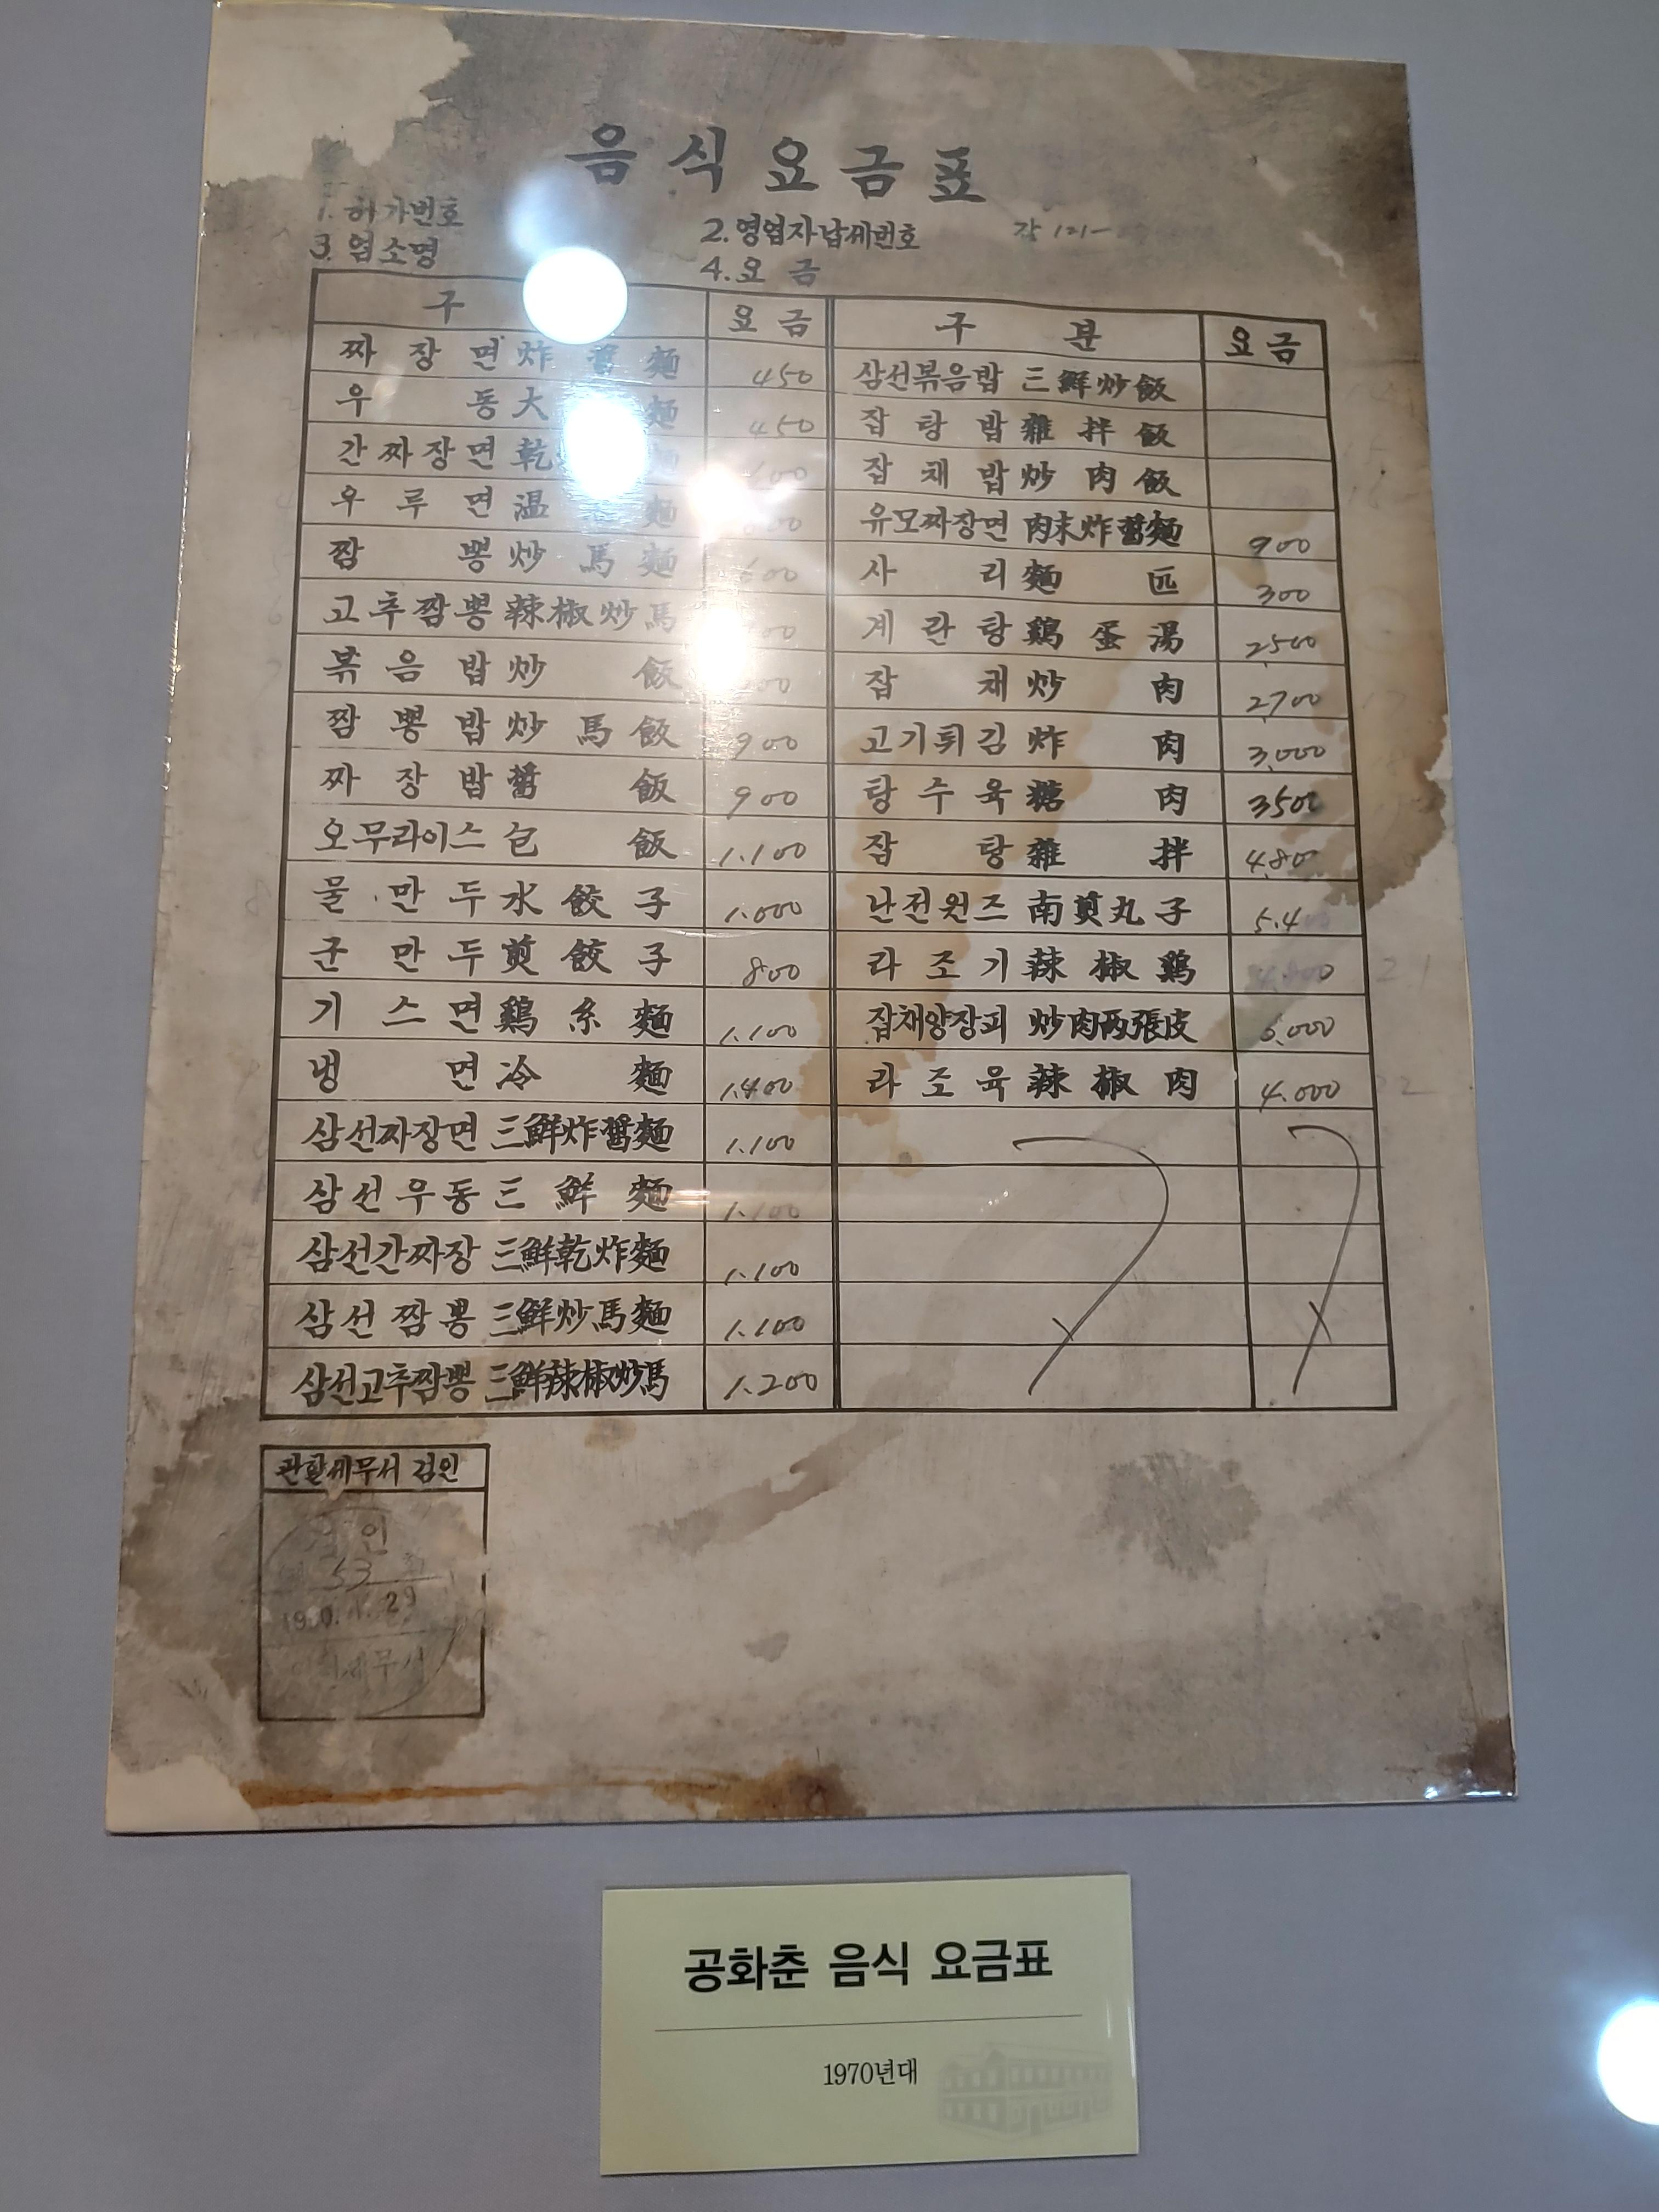 음식요금표
1. 허가번호
2. 영업자납세번호 각 121-
3. 업소명
4. 요 금
구 요 금
짜 장 면 炸 醬 麵 450
우 동 大 麵 450
간 짜 장 면 乾
우 루 면 温 麵
짬 뽕 炒 馬 麵 600
고추짬뽕 辣椒炒馬
볶 음 밥 炒 飯
짬 뽕 밥 炒 馬 飯 900
짜 장 밥 醬 飯 900
오무라이스 包 飯 1.100
물 만 두 水 餃 子 1.000
군 만 두 煎 餃 子 800
기 스 면 鷄 糸 麵 1.100
냉 면 冷 麵 1.400
삼선짜장면 三鮮炸醬麵 1.100
삼선우동 三 鮮 麵 1.100
삼선간짜장 三鮮乾炸麵 1.100
삼선짬뽕 三鮮炒馬麵 1.100
삼선고추짬뽕 三鮮辣椒炒馬 1.200
구 분 요 금
삼선볶음밥 三鮮炒飯
잡 탕 밥 雜 拌 飯
잡 채 밥 炒 肉 飯
유모짜장면 肉末炸醬麵 900
사 리 麵 匹 300
계 란 탕 鷄 蛋 湯 2,500
잡 채 炒 肉 2,700
고기튀김 炸 肉 3,000
탕 수 육 糖 肉 3500
잡 탕 雜 拌 4,80
난전원즈 南煎丸子 5.4
라 조 기 辣 椒 鷄
잡채양장피 炒肉两張皮 6,000
라 조 육 辣 椒 肉 4.000
관할세무서 검인
인
53
29
세무서
공화춘 음식 요금표
1970년대